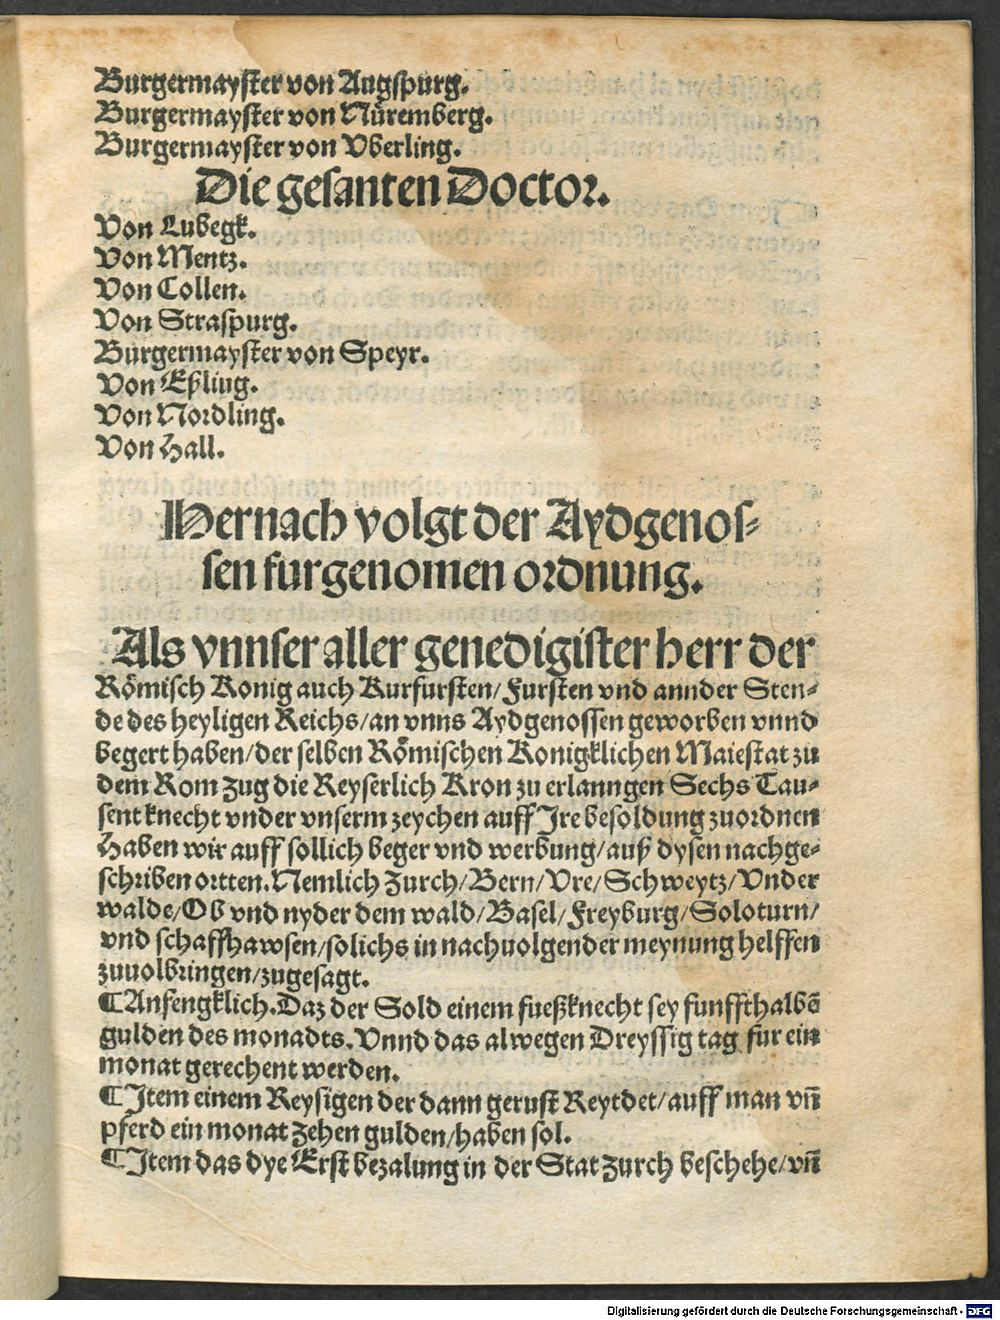 Burgermayster von Augspurg.
Burgermayster von Nůremberg.
Burgermayster von Vberling.
Die gesanten Doctor.
Von Lubegk.
Von Mentz.
Von Collen.
Von Straspurg.
Burgermayster von Speyr.
Von Eßling.
Von Nordling.
Von Hall.
Hernach volgt der Aydgenos-
sen furgenomen ordnung.
Als vnnser aller genedigister herr der
Römisch Konig auch Kurfursten/Fursten vnd annder Sten-
de des heyligen Reichs/an vnns Aydgenossen geworben vnnd
begert haben/der selben Römischen Konigklichen Maiestat zu
dem Rom zug die Keyserlich Kron zu erlanngen Sechs Tau-
sent knecht vnder vnserm zeychen auff Jre besoldung zuordnen
Haben wir auff sollich beger vnd werbung/auß dysen nachge-
schriben ortten.Nemlich Zurch/Bern/Vre/Schweytz/Vnder
walde/Ob vnd nyder dem wald/Basel/Freyburg/Soloturn/
vnd schaffhawsen/solichs in nachuolgender meynung helffen
zuuolbringen/zugesagt.
¶Anfengklich.Daz der Sold einem fueßknecht sey funffthalbē
gulden des monadts.Vnnd das alwegen Dreyssig tag fur ein
monat gerechent werden.
¶Jtem einem Reysigen der dann gerust Reytdet/auff man vn̄
pferd ein monat zehen gulden/haben sol.
¶Jtem das dye Erst bezalung in der Stat Zurch beschehe/vn̄
Digitalisierung gefördert durch die Deutsche Forschungsgemeinschaft - DFG